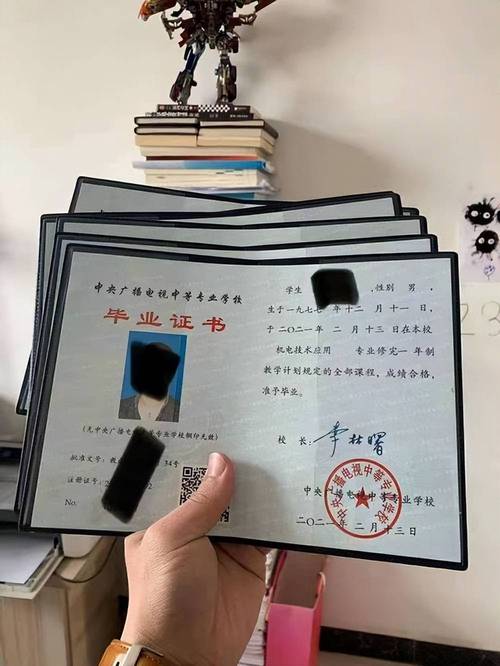 中央广播电视中等专业学校
毕业证书
(无中央广播电视中等专业学校钢印无效)
批准文号:教
34号
注册证号:
2
No.
学生
,性别 男,
生于一九七七年十二月十一日,
于二〇二一年 二月十三日在本校
机电技术应用 专业修完一年制
教学计划规定的全部课程,成绩合格,
准予毕业。
校 长:
李林曙
中央广播电视中等专业学校
二〇二一年 二月十三日
中央广播电视中等专业学校
23